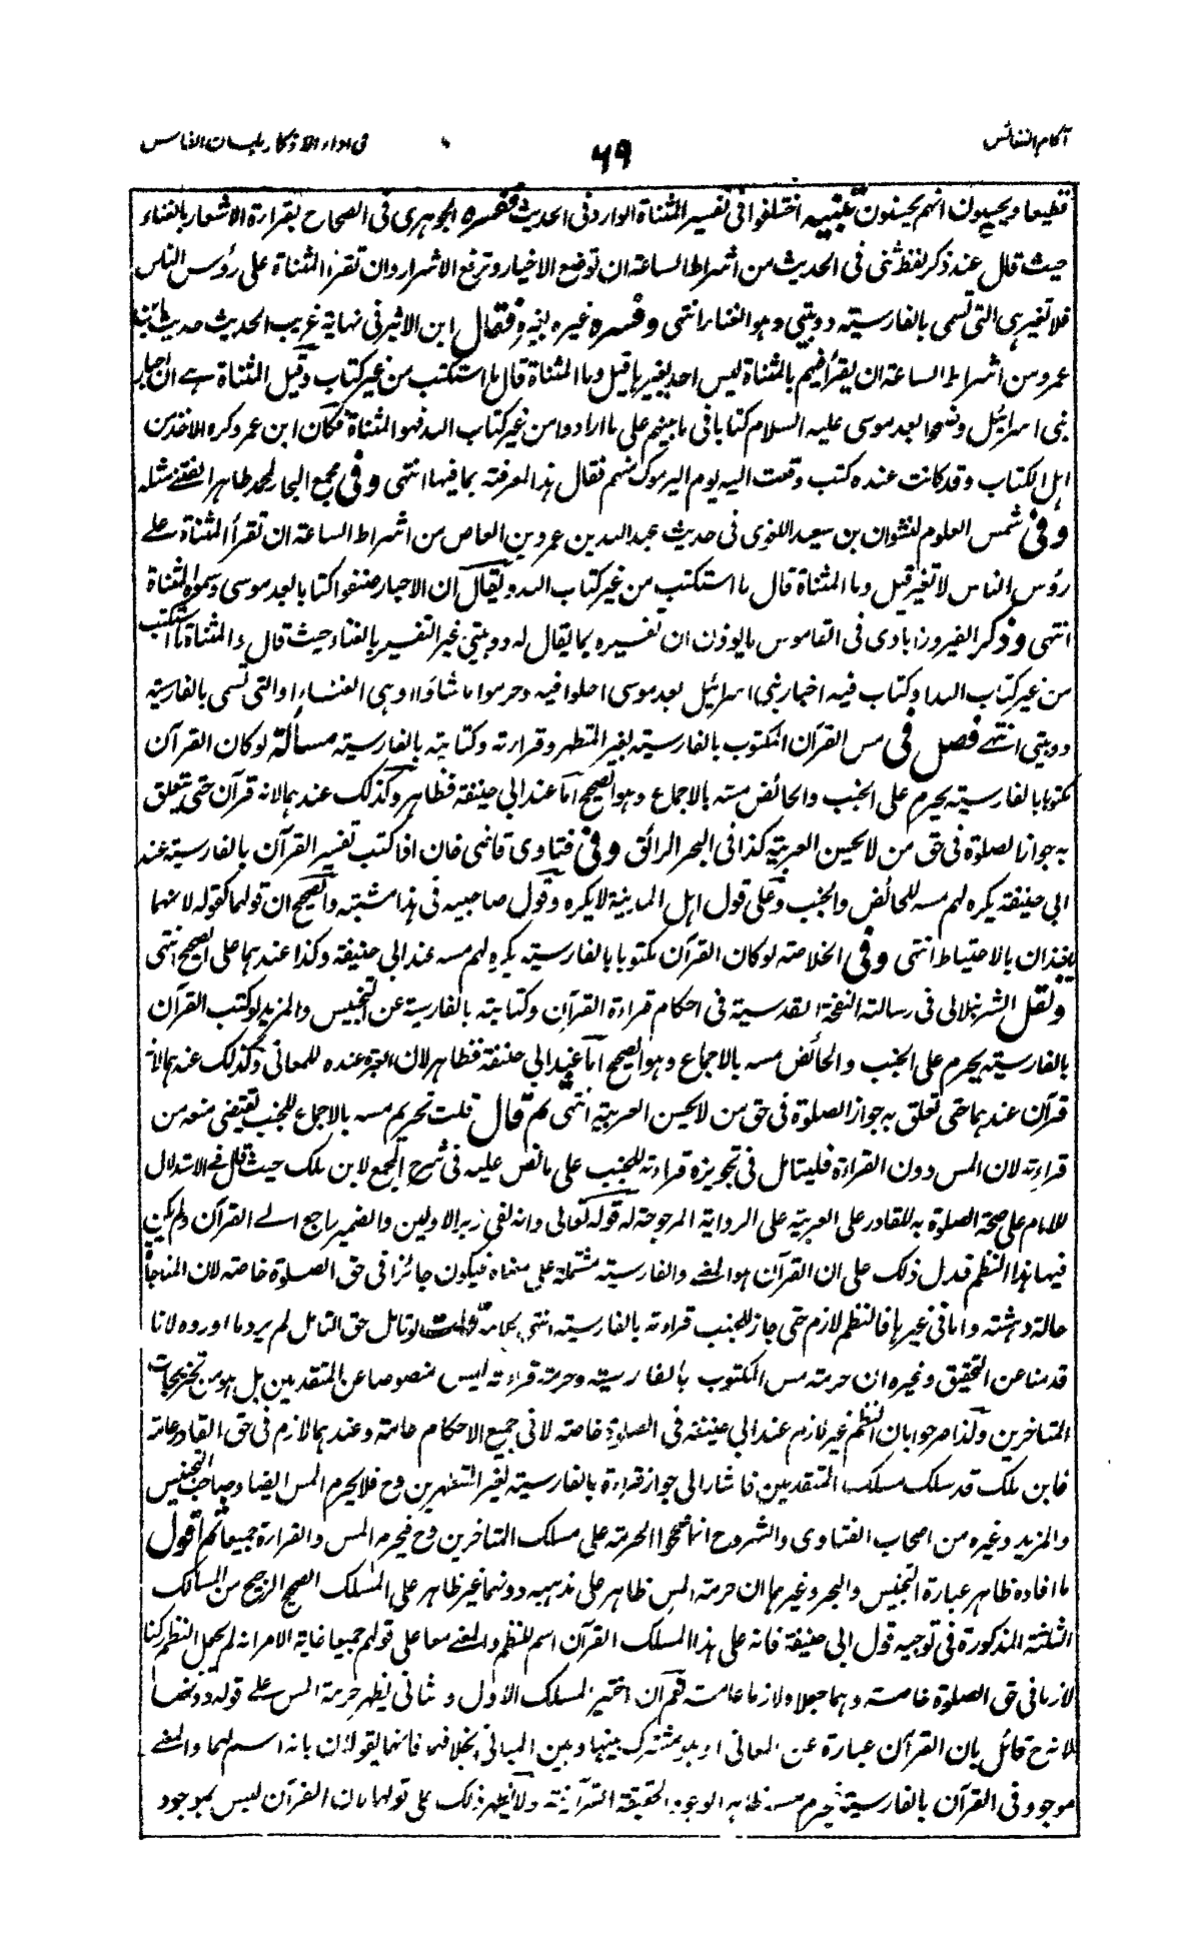 آكام النفائس
٦٩
فی اداء الاذكار بلسان الفارس
قطيعا ويحسبون انهم يحسنون تنبيه اختلفوا فی تفسير المثناة الوارد فی الحديث ففسره الجوهری فی الصحاح بقراءة الاشعار بالغناء
حيث قال عند ذكر لفظ ثنی فی الحديث من اشراط الساعة ان توضع الاخيار وترفع الاشرار وان تقرء المثناة علی رؤس الناس
فلا تغير هی التی تسمی بالفارسية دوبيتی وهو الغناء انتهی وفسره غيره بغيره فقال ابن الاثير فی نهاية غريب الحديث حديث
عمرو من اشراط الساعة ان يقرأ فيهم بالمثناة ليس احد يغيرها قيل وما المثناة قال ما استكتب من غير كتاب وقيل المثناة هے ان احبار
بنی اسرائيل وضعوا بعد موسی عليه السلام كتابا فی ما بينهم علی ما ارادوا من غير كتاب الله فهو المثناة فكان ابن عمرو كره الاخذ من
اهل الكتاب وقد كانت عنده كتب وقعت اليه يوم اليرموك منهم فقال هذا لمعرفته بما فيها انتهی وفی مجمع البحار لمحمد طاهر الفتنے مثله
وفی شمس العلوم لنشوان بن سعيد اللغوی فی حديث عبد الله بن عمرو بن العاص من اشراط الساعة ان تقرأ المثناة علے
رؤس الناس لا تغير قيل وما المثناة قال ما استكتب من غير كتاب الله ويقال ان الاحبار صنفوا كتابا بعد موسی وسموه المثناة
انتهی وذكر الفيروزابادی فی القاموس ما يوذن ان تفسيره بما يقال له دوبيتی غير التفسير بالغناء حيث قال والمثناة ما استكتب
من غير كتاب الله او كتاب فيه اخبار بنی اسرائيل بعد موسی احلوا فيه وحرموا ما شاؤا او هی الغناء او التی تسمی بالفارسية
دوبيتی انتهے فصل فی مس القرآن المكتوب بالفارسية لغير المتطهر وقراءته وكتابته بالفارسية مسألة لو كان القرآن
مكتوبا بالفارسية يحرم علی الجنب والحائض مسه بالاجماع وهو الصحيح اما عند ابی حنيفة فظاهر وكذلك عندهما لانه قرآن حتی يتعلق
به جواز الصلوة فی حق من لا يحسن العربية كذا فی البحر الرائق وفی فتاوی قاضی خان اذا كتب تفسير القرآن بالفارسية عند
ابی حنيفة يكره لهم مسه للحائض والجنب وعلی قول اهل المدينة لا يكره وقول صاحبيه فی هذا مشتبه والصحيح ان قولهما كقوله لانهما
ياخذان بالاحتياط انتهی وفی الخلاصة لو كان القرآن مكتوبا بالفارسية يكره لهم مسه عند ابی حنيفة وكذا عندهما علی الصحيح انتهی
ونقل الشرنبلالی فی رسالته النفحة القدسية فی احكام قراءة القرآن وكتابته بالفارسية عن التجنيس والمزيد لو كتب القرآن
بالفارسية يحرم علی الجنب والحائض مسه بالاجماع وهو الصحيح اما عند ابی حنيفة فظاهر لان العبرة عنده للمعانی وكذلك عندهما لانه
قرآن عندهما حتی تعلق به جواز الصلوة فی حق من لا يحسن العربية انتهی ثم قال قلت تحريم مسه بالاجماع للجنب يقتضی منعه من
قراءته لان المس دون القراءة فليتامل فی تجويزه قراءته للجنب علی ما نص عليه فی شرح المجمع لابن ملك حيث قال فے الاستدلال
للامام علی صحة الصلوة به للقادر علی العربية علی الرواية المرجوحة له قوله تعالی وانه لفی زبر الاولين والضمير راجع الے القرآن ولم يكن
فيها هذا النظم فدل ذلك علی ان القرآن هو المعنے والفارسية مشتملة علی معناه فيكون جائزا فی حق الصلوة خاصة لان المناجاة
حالة دهشة واما فی غيرها فالنظم لازم حتی جاز للجنب قراءته بالفارسية انتهی بكلامه قلت لو تامل حق التامل لم يرد ما اورده لانا
قدمنا عن التحقيق وغيره ان حرمة مس المكتوب بالفارسية وحرمة قراءته ليس منصوصا عن المتقدمين بل هو من تخريجات
المتاخرين ولذا صرحوا بان النظم غير لازم عند ابی حنيفة فی الصلوة خاصة لا فی جميع الاحكام عامة وعندهما لازم فی حق القادر عامة
فابن ملك قد سلك مسلك المتقدمين فاشار الی جواز قراءة بالفارسية لغير المتطهرين وح فلا يحرم المس ايضا وصاحب التجنيس
والمزيد وغيره من اصحاب الفتاوی والشروح انما صححوا الحرمة علی مسلك المتاخرين وح فيحرم المس والقراءة جميعا ثم اقول
ما افاده ظاهر عبارة التجنيس والبحر وغيرهما ان حرمة المس ظاهر علی مذهبه دونهما غير ظاهر علی المسلك الصحيح الرجيح من المسالك
الثلثة المذكورة فی توجيه قول ابی حنيفة فانه علی هذا المسلك القرآن اسم للنظم والمعنے معا علی قولهم جميعا غاية الامر انه لم يجعل النظم ركنا
لازما فی حق الصلوة خاصة وهما جعلاه لازما عامة نعم ان اختير المسلك الاول والثانی يظهر حرمة المس علے قوله دونهما
لانه ح قائل بان القرآن عبارة عن المعانی او هو مشترك بينها وبين المبانی بخلافهما فانهما يقولان بانه اسم لهما والمعنے
موجود فی القرآن بالفارسية فيحرم مسه ظاهرا لوجود الحقيقة القرآنية ولا يظهر ذلك علی قولهما بان القرآن ليس بموجود